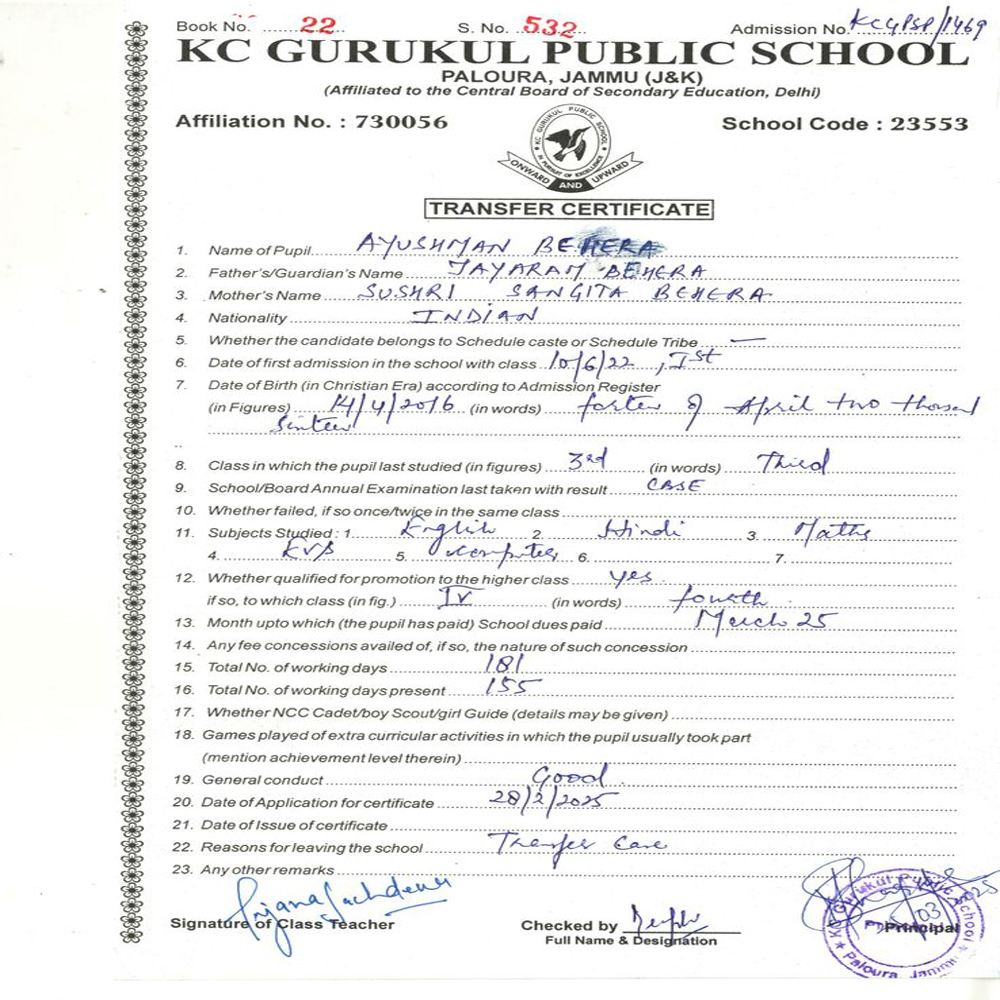 Book No. 22 S. No. 532 Admission No. KCGPSP/1469
KC GURUKUL PUBLIC SCHOOL
PALOURA, JAMMU (J&K)
(Affiliated to the Central Board of Secondary Education, Delhi)
Affiliation No. : 730056 School Code : 23553
KC GURUKUL PUBLIC SCHOOL
IN PURSUIT OF EXCELLENCE
ONWARD AND UPWARD
TRANSFER CERTIFICATE
1. Name of Pupil AYUSHMAN BEHERA
2. Father's/Guardian's Name JAYARAM BEHERA
3. Mother's Name SUSHRI SANGITA BEHERA
4. Nationality INDIAN
5. Whether the candidate belongs to Schedule caste or Schedule Tribe —
6. Date of first admission in the school with class 10/6/22, Ist
7. Date of Birth (in Christian Era) according to Admission Register
(in Figures) 14/4/2016 (in words) forteen of April two thousand
Sixteen
8. Class in which the pupil last studied (in figures) 3rd (in words) Third
9. School/Board Annual Examination last taken with result CBSE
10. Whether failed, if so once/twice in the same class
11. Subjects Studied : 1. English 2. Hindi 3. Maths
4. EVS 5. Computer 6. 7.
12. Whether qualified for promotion to the higher class yes
if so, to which class (in fig.) IV (in words) fourth
13. Month upto which (the pupil has paid) School dues paid March 25
14. Any fee concessions availed of, if so, the nature of such concession
15. Total No. of working days 181
16. Total No. of working days present 155
17. Whether NCC Cadet/boy Scout/girl Guide (details may be given)
18. Games played of extra curricular activities in which the pupil usually took part
(mention achievement level therein)
19. General conduct Good
20. Date of Application for certificate 28/2/2025
21. Date of Issue of certificate
22. Reasons for leaving the school Transfer Case
23. Any other remarks
Signature of Class Teacher Checked by Principal
Full Name & Designation
KC Gurukul Public School
Paloura, Jammu